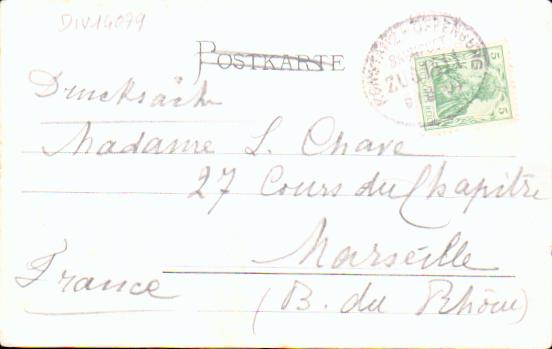 DIV14079
POSTKARTE
KONSTANZ OFFENBURG
BAHNPOST
ZUG
5
5
Drucksach
Madame L. Chave
27 Cours du Chapitre
Marseille
France
(B. du Rhône)